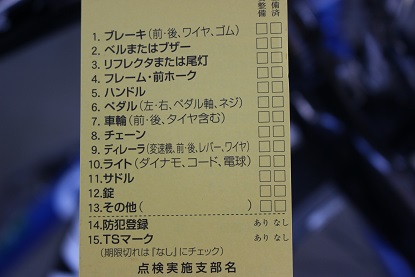 整備 備済
1. ブレーキ(前・後、ワイヤ、ゴム) □□
2. ベルまたはブザー □□
3. リフレクタまたは尾灯 □□
4. フレーム・前ホーク □□
5. ハンドル □□
6. ペダル(左・右、ペダル軸、ネジ) □□
7. 車輪(前・後、タイヤ含む) □□
8. チェーン □□
9. ディレーラ(変速機、前・後、レバー、ワイヤ) □□
10. ライト(ダイナモ、コード、電球) □□
11. サドル □□
12. 錠 □□
13. その他( ) □□
14. 防犯登録 あり なし
15. TSマーク あり なし
(期限切れは「なし」にチェック)
点検実施支部名